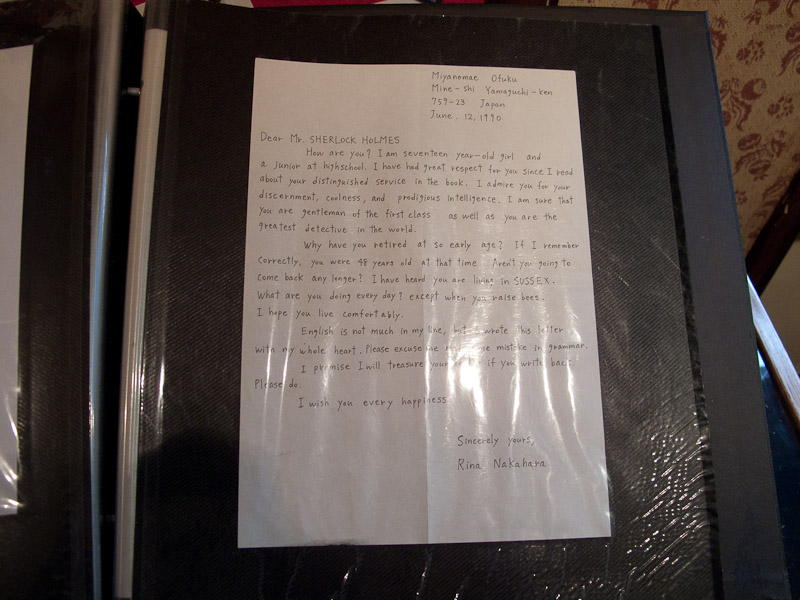 Miyanomae Ofuku
Mine-shi Yamaguchi-ken
759-23 Japan
June. 12, 1990
Dear Mr. SHERLOCK HOLMES
How are you? I am seventeen year-old girl and
a junior at highschool. I have had great respect for you since I read
about your distinguished service in the book. I admire you for your
discernment, coolness, and prodigious intelligence. I am sure that
you are gentleman of the first class as well as you are the
greatest detective in the world.
Why have you retired at so early age? If I remember
correctly, you were 48 years old at that time Aren't you going to
come back any longer? I have heard you are living in SUSSEX.
What are you doing every day? except when you raise bees.
I hope you live comfortably.
English is not much in my line, but I wrote this letter
with my whole heart. Please excuse me mistake in grammar.
I promise I will treasure your if you write back
Please do.
I wish you every happiness
Sincerely yours,
Rina Nakahara